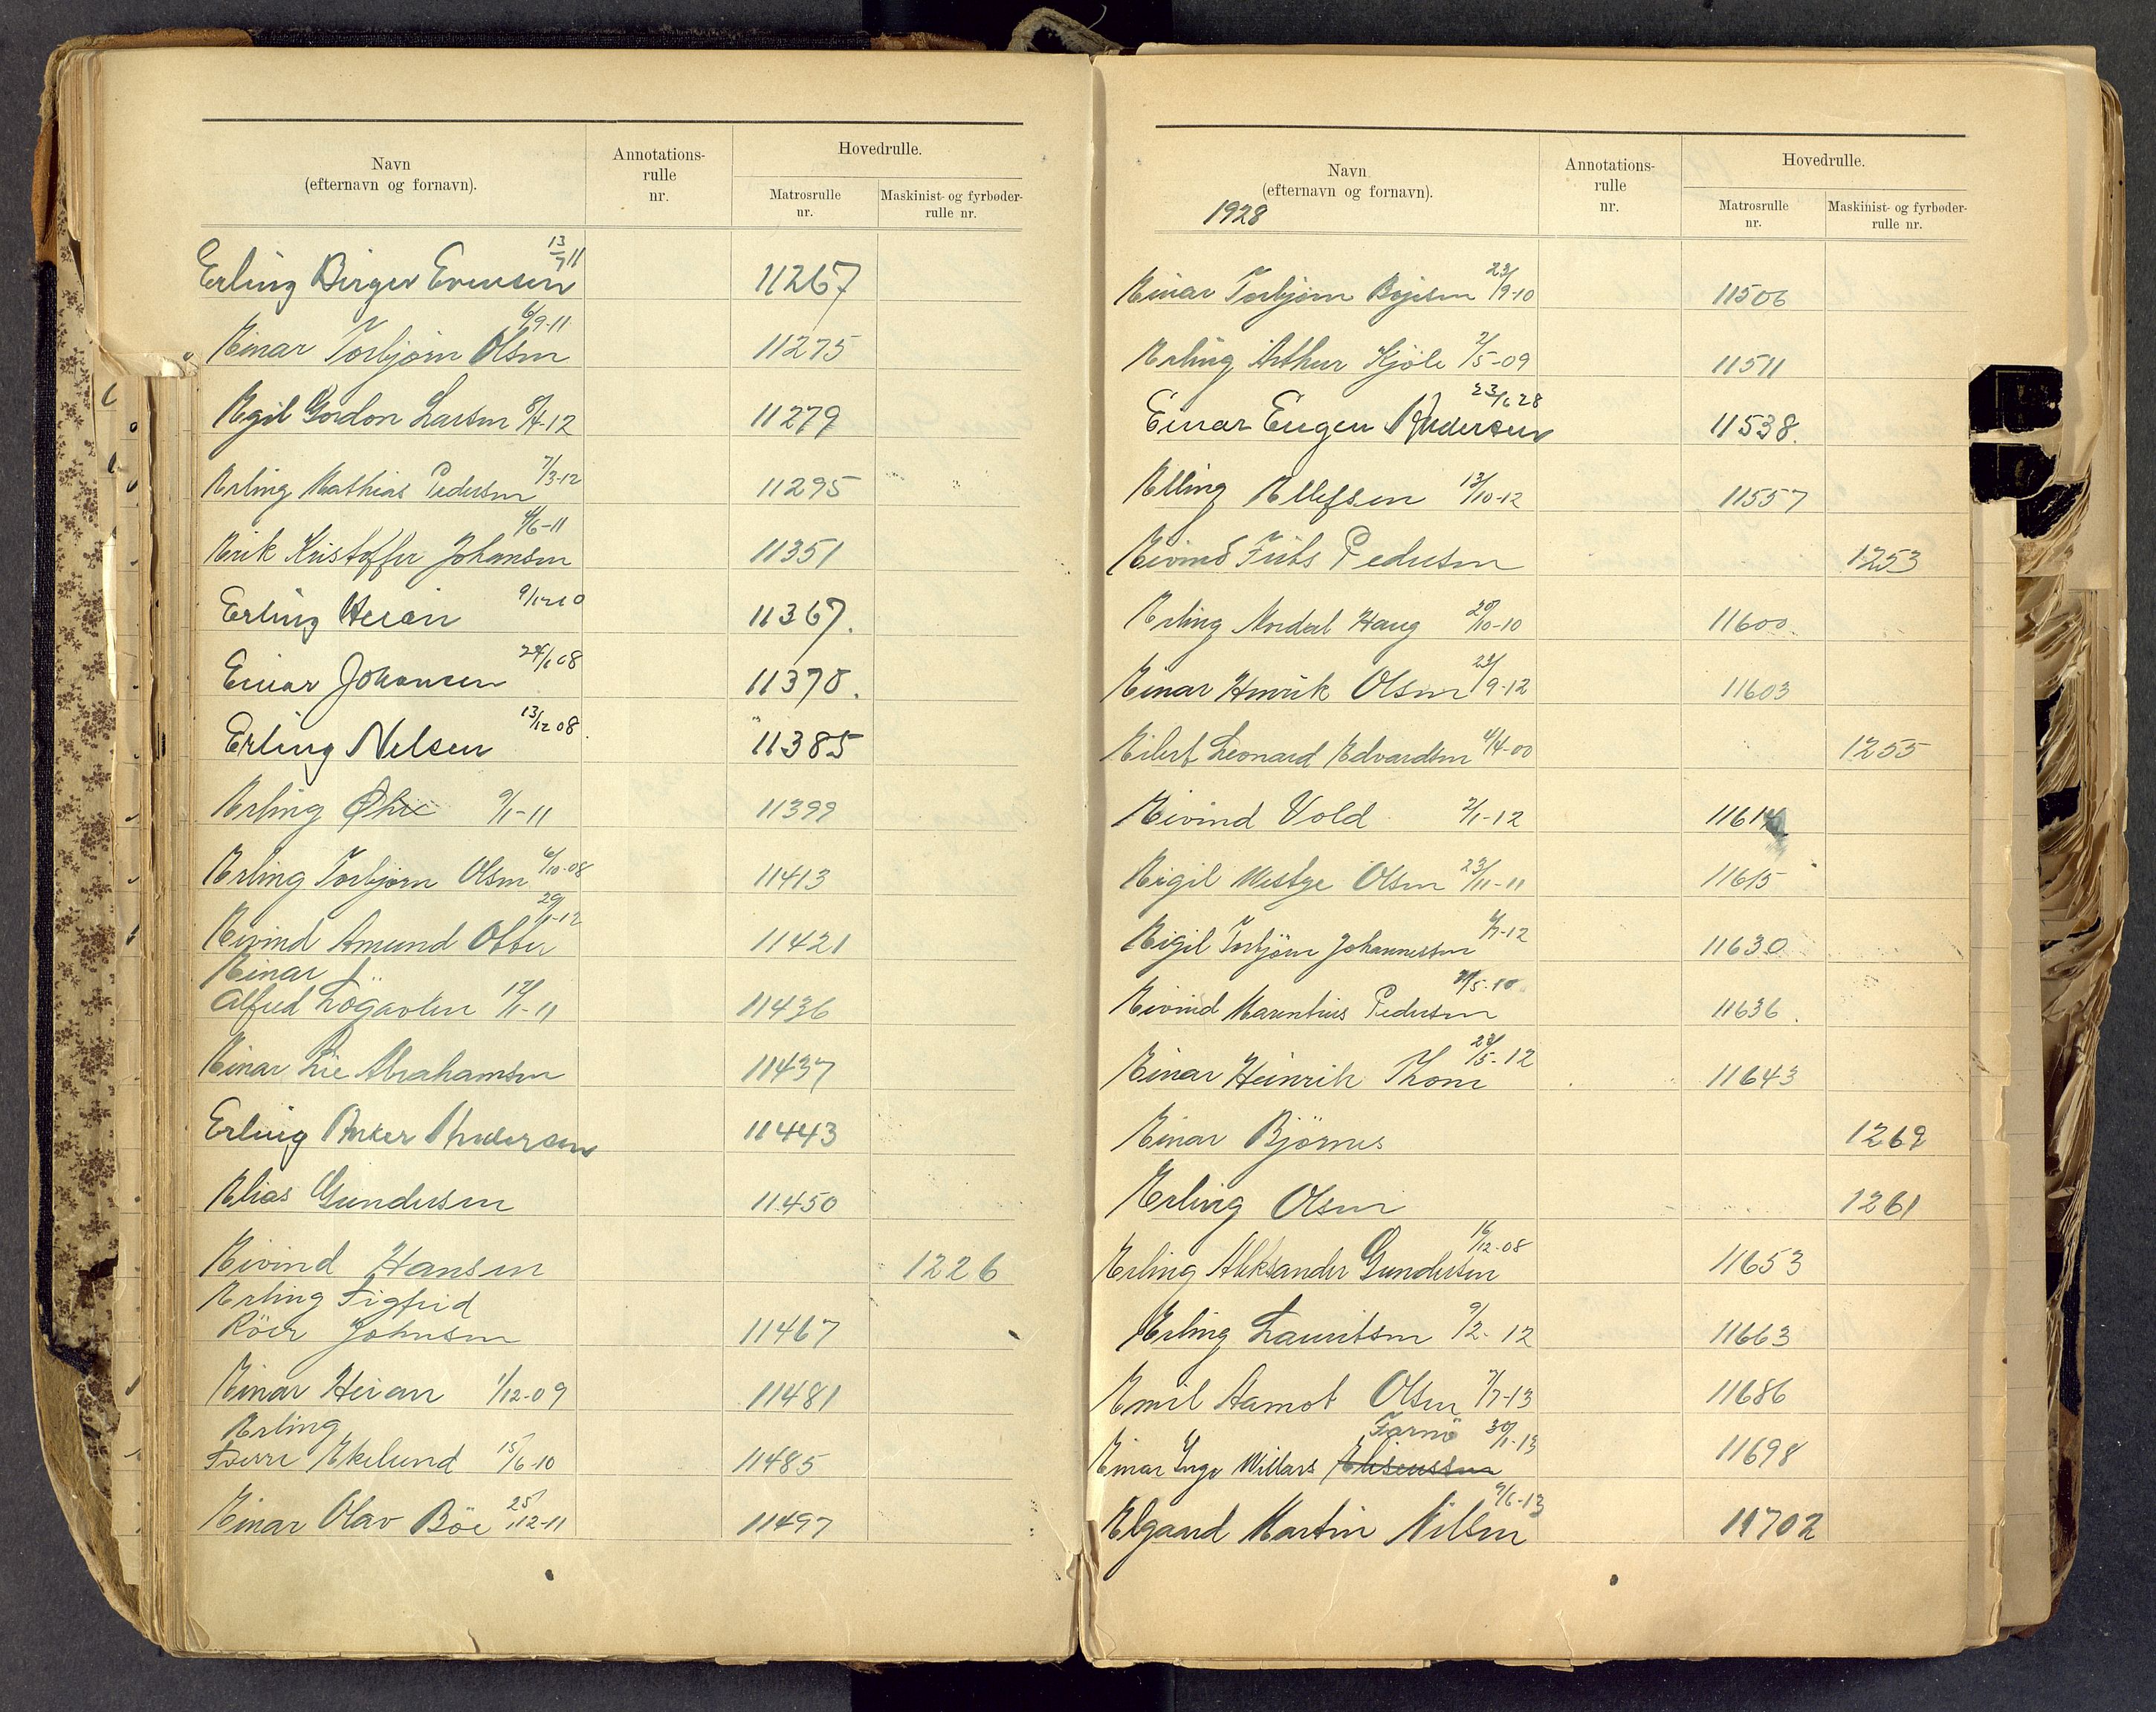 Navn
(efternavn og fornavn).
Annotations-
rulle
nr.
Hovedrulle.
Matrosrulle
nr.
Maskinist- og fyrbøder-
rulle nr.
Erling Birger Evensen 13/7 11 11267
Einar Torbjørn Olsen 6/9-11 11275
Egil Gordon Larsen 8/4-12 11279
Erling Mathias Pedersen 7/3-12 11295
Erik Kristoffer Johansen 4/6-11 11351
Erling Heian 9/12 10 11367.
Einar Johansen 24/1 08 11378.
Erling Nelsen 13/12 08. 11385
Erling 9/1-11 11399
Erling Torbjørn Olsen 6/10-08 11413
Eivind Amund 29/1-12 11421
Einar
Alfred 11436
Einar Lie Abrahamsen 11437
Erling Anker Andersen 11443
Elias Gundersen 11450
Eivind Hansen 1226
Erling Sigfrid
Röer Johnsen 11467
Einar Heian 1/12-09 11481
Erling
Sverre Ekelund 15/6-10 11485
Einar Olav Böe 25/12-11 11497
Navn
(efternavn og fornavn).
1928
Annotations-
rulle
nr.
Hovedrulle.
Matrosrulle
nr.
Maskinist- og fyrbøder-
rulle nr.
Einar Torbjørn Bojesen 23/9-10 11506
Erling Arthur Kjöle 2/5-09 11511
Einar Eugen Andersen 23/6 28 11538.
Elling Ellefsen 13/10-12 11557
Eivind Frits Pedersen 1253
Erling Nordal Haug 20/10-10 11600
Einar Henrik Olsen 23/9-12 11603
Eilert Leonard Edvardsen 4/4-00 1255
Eivind Vold 2/1-12 11614
Eigil Olsen 23/11-11 11615
Eigil Torbjörn Johannessen 11630
Eivind Marentius Pedersen 11636.
Einar Heinrik Thom 23/5-12 11643
Einar Björnes 1262
Erling Olsen 1261
Erling Aleksander Gundersen 16/12-08 11653
Erling Lauritsen 9/2-12 11663
Emil Aamot Olsen 7/7-13 11686
Farnö 30/1-13
Einar Inge Willars Eliseussen 11698
Elgaard Martin Nilsen 9/6-13 11702